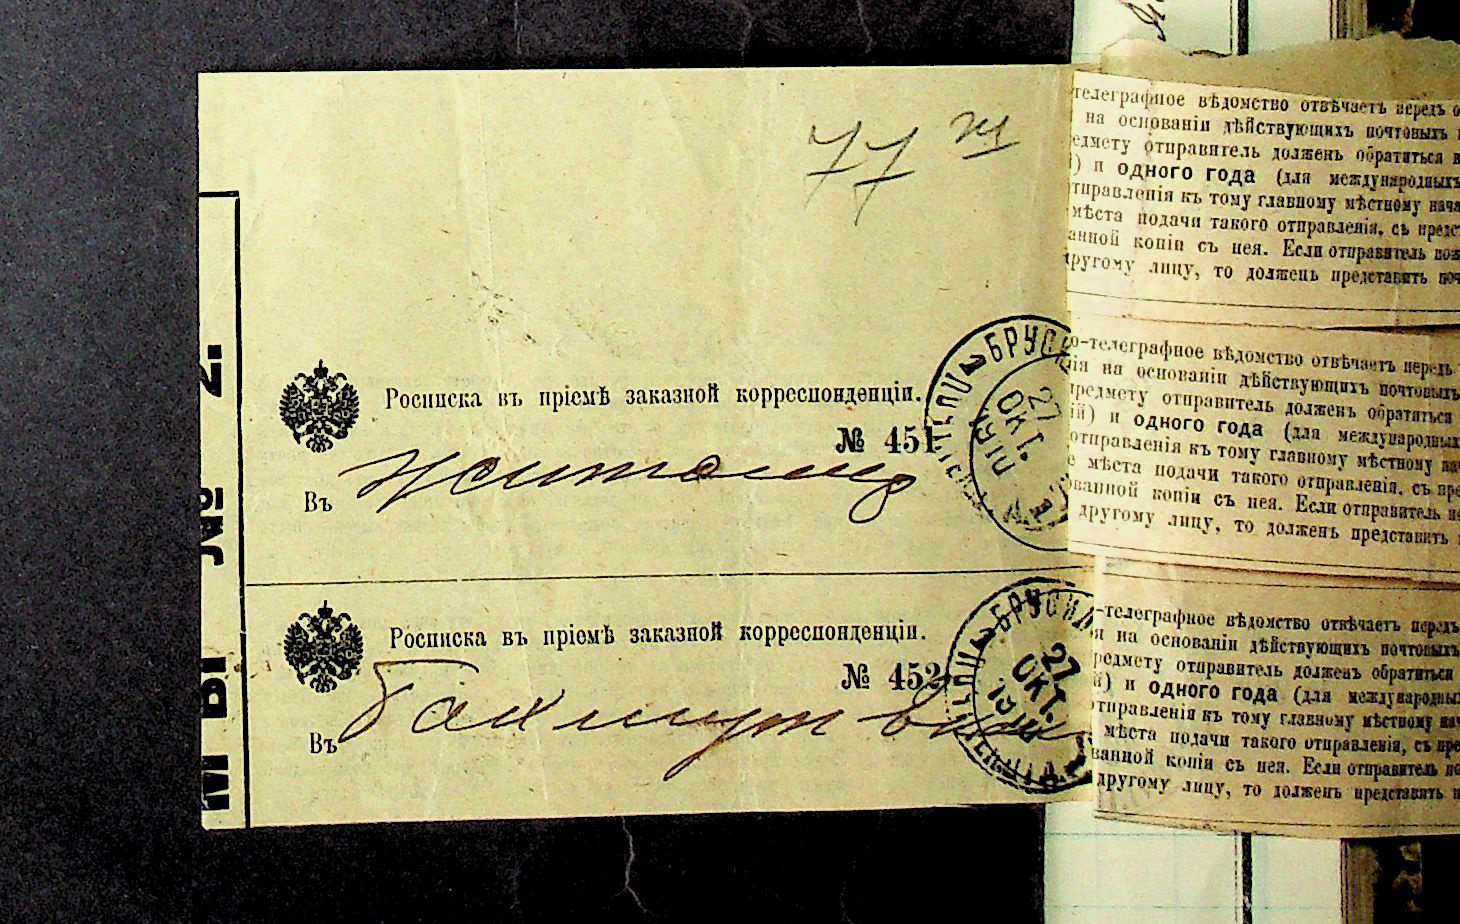 77
Росписка въ пріемѣ заказной корреспонденціи.
№ 451
Въ Житомир
БРУСИ
27 ОКТ.
Росписка въ пріемѣ заказной корреспонденціи.
№ 452
Въ Бахмут
БРУСИЛ
27 ОКТ. 1911
М ВІ № 2.
телеграфное вѣдомство отвѣчаетъ передъ о
на основаніи дѣйствующихъ почтовыхъ
едмету отправитель долженъ обратиться в
) и одного года (для международныхъ
отправленія къ тому главному мѣстному нача
мѣста подачи такого отправленія, съ предст
анной копіи съ нея. Если отправитель пож
другому лицу, то долженъ представить поч
о-телеграфное вѣдомство отвѣчаетъ передъ
ія на основаніи дѣйствующихъ почтовыхъ
предмету отправитель долженъ обратиться
ій) и одного года (для международных
отправленія къ тому главному мѣстному на
е мѣста подачи такого отправленія, съ пре
ованной копіи съ нея. Если отправитель п
другому лицу, то долженъ представить
-телеграфное вѣдомство отвѣчаетъ передъ
я на основаніи дѣйствующихъ почтовыхъ
редмету отправитель долженъ обратиться
й) и одного года (для международны
отправленія къ тому главному мѣстному нач
мѣста подачи такого отправленія, съ пре
ванной копіи съ нея. Если отправитель по
другому лицу, то долженъ представить